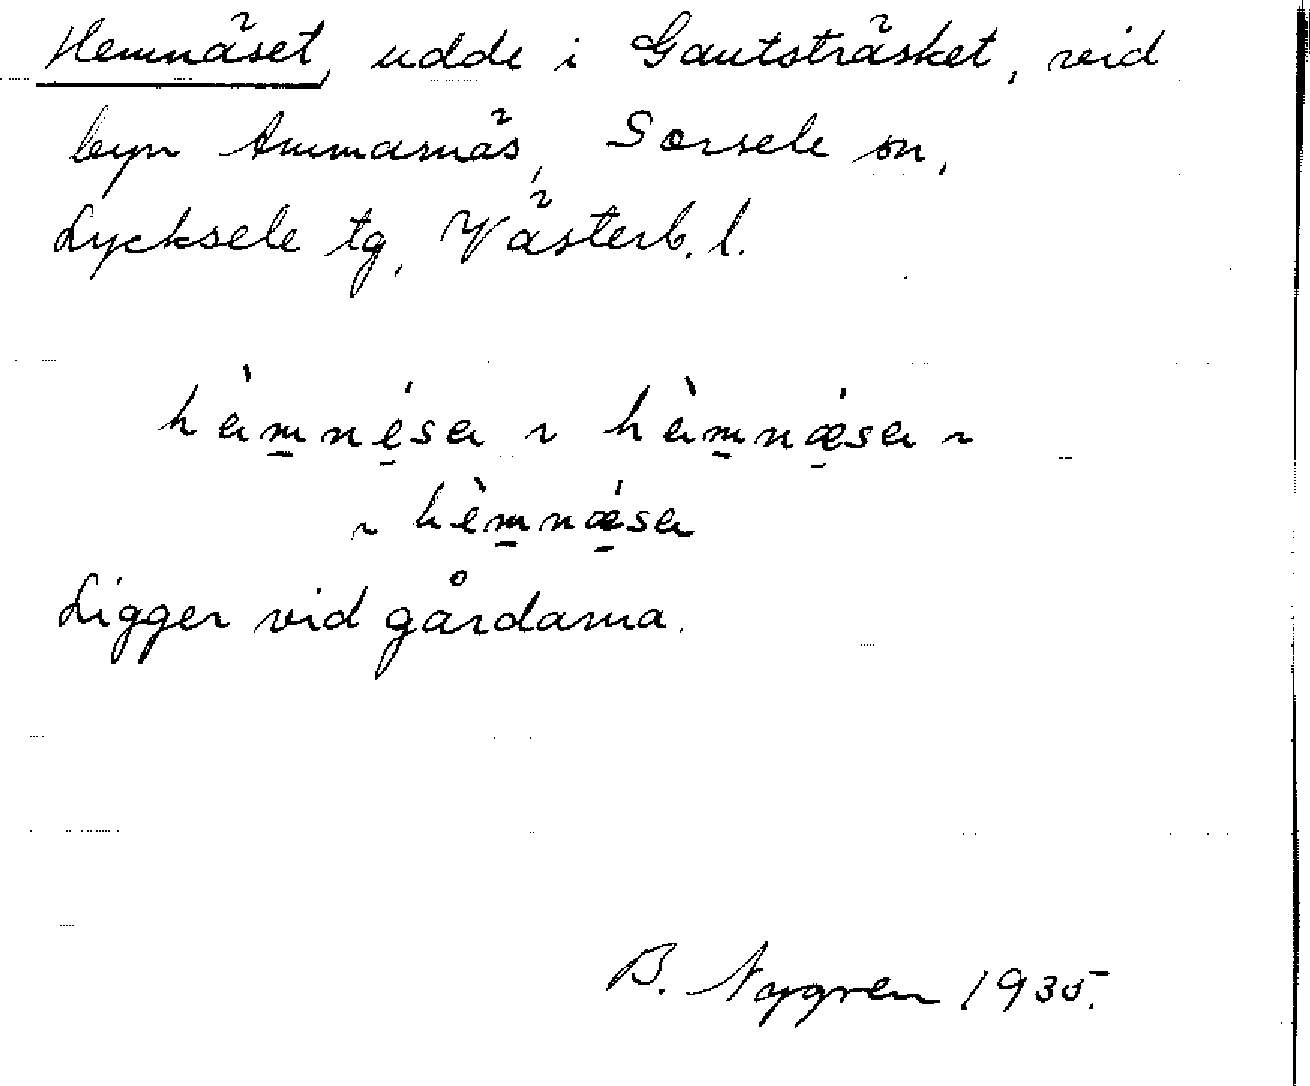 Hemnäset, udde i Gautsträsket, vid
byn Ammarnäs, Sorsele sn,
Lycksele tg, Västerb. l.
hàm̲né̲sa ~ hàm̲nǽ̲sa ~
~ hèm̲nǽ̲sa
Ligger vid gårdarna.
B. Nygren 1935.